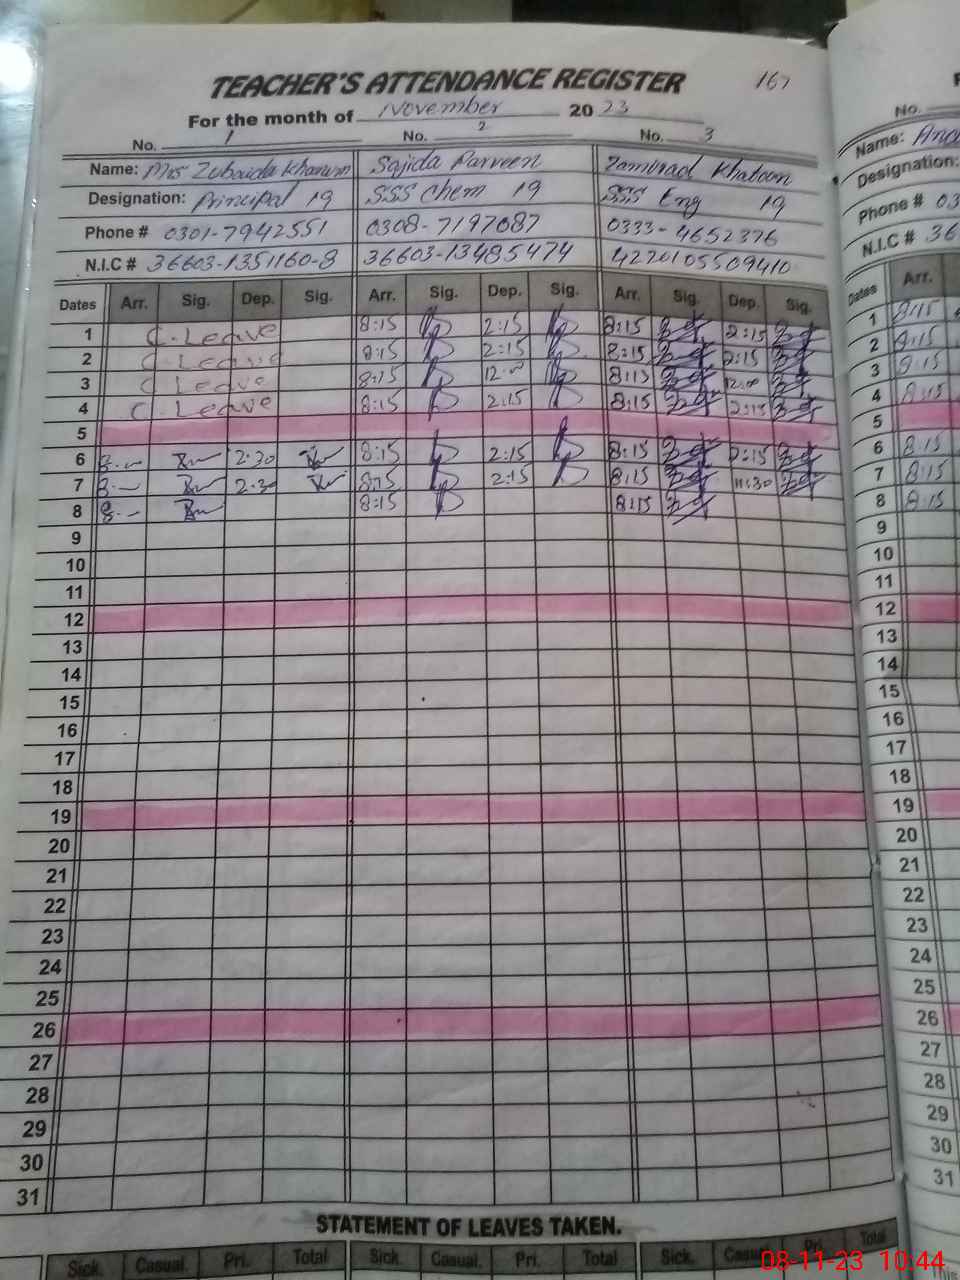 TEACHER'S ATTENDANCE REGISTER 167
For the month of November 2023
No. 1 No. 2 No. 3
Name: Mrs Zubaida Khanum Sajida Parveen Zamurad Khatoon
Designation: Principal 19 SSS Chem 19 SSS Eng 19
Phone # 0301-7942551 0308-7197087 0333-4652376
N.I.C # 36603-1351160-8 36603-13485474 4220105509410
Dates Arr. Sig. Dep. Sig. Arr. Sig. Dep. Sig. Arr. Sig. Dep. Sig.
1 C. Leave 8:15 2:15 8:15 2:15
2 C. Leave 8:15 2:15 8:15 2:15
3 C Leave 8:15 12:00 8:15 12:00
4 C. Leave 8:15 2:15 8:15 2:15
5
6 2:30 8:15 2:15 8:15 2:15
7 2:30 8:15 2:15 8:15 11:30
8 8:15 8:15
9
10
11
12
13
14
15
16
17
18
19
20
21
22
23
24
25
26
27
28
29
30
31
STATEMENT OF LEAVES TAKEN.
Sick. Casual. Pri. Total Sick. Casual. Pri. Total Sick. Casual. Pri. Total
No.
Name:
Designation:
Phone # 03
N.I.C # 36
Dates Arr.
1 8:15
2 8:15
3 8:15
4 8:15
5
6 8:15
7 8:15
8 8:15
9
10
11
12
13
14
15
16
17
18
19
20
21
22
23
24
25
26
27
28
29
30
31
08-11-23 10:44